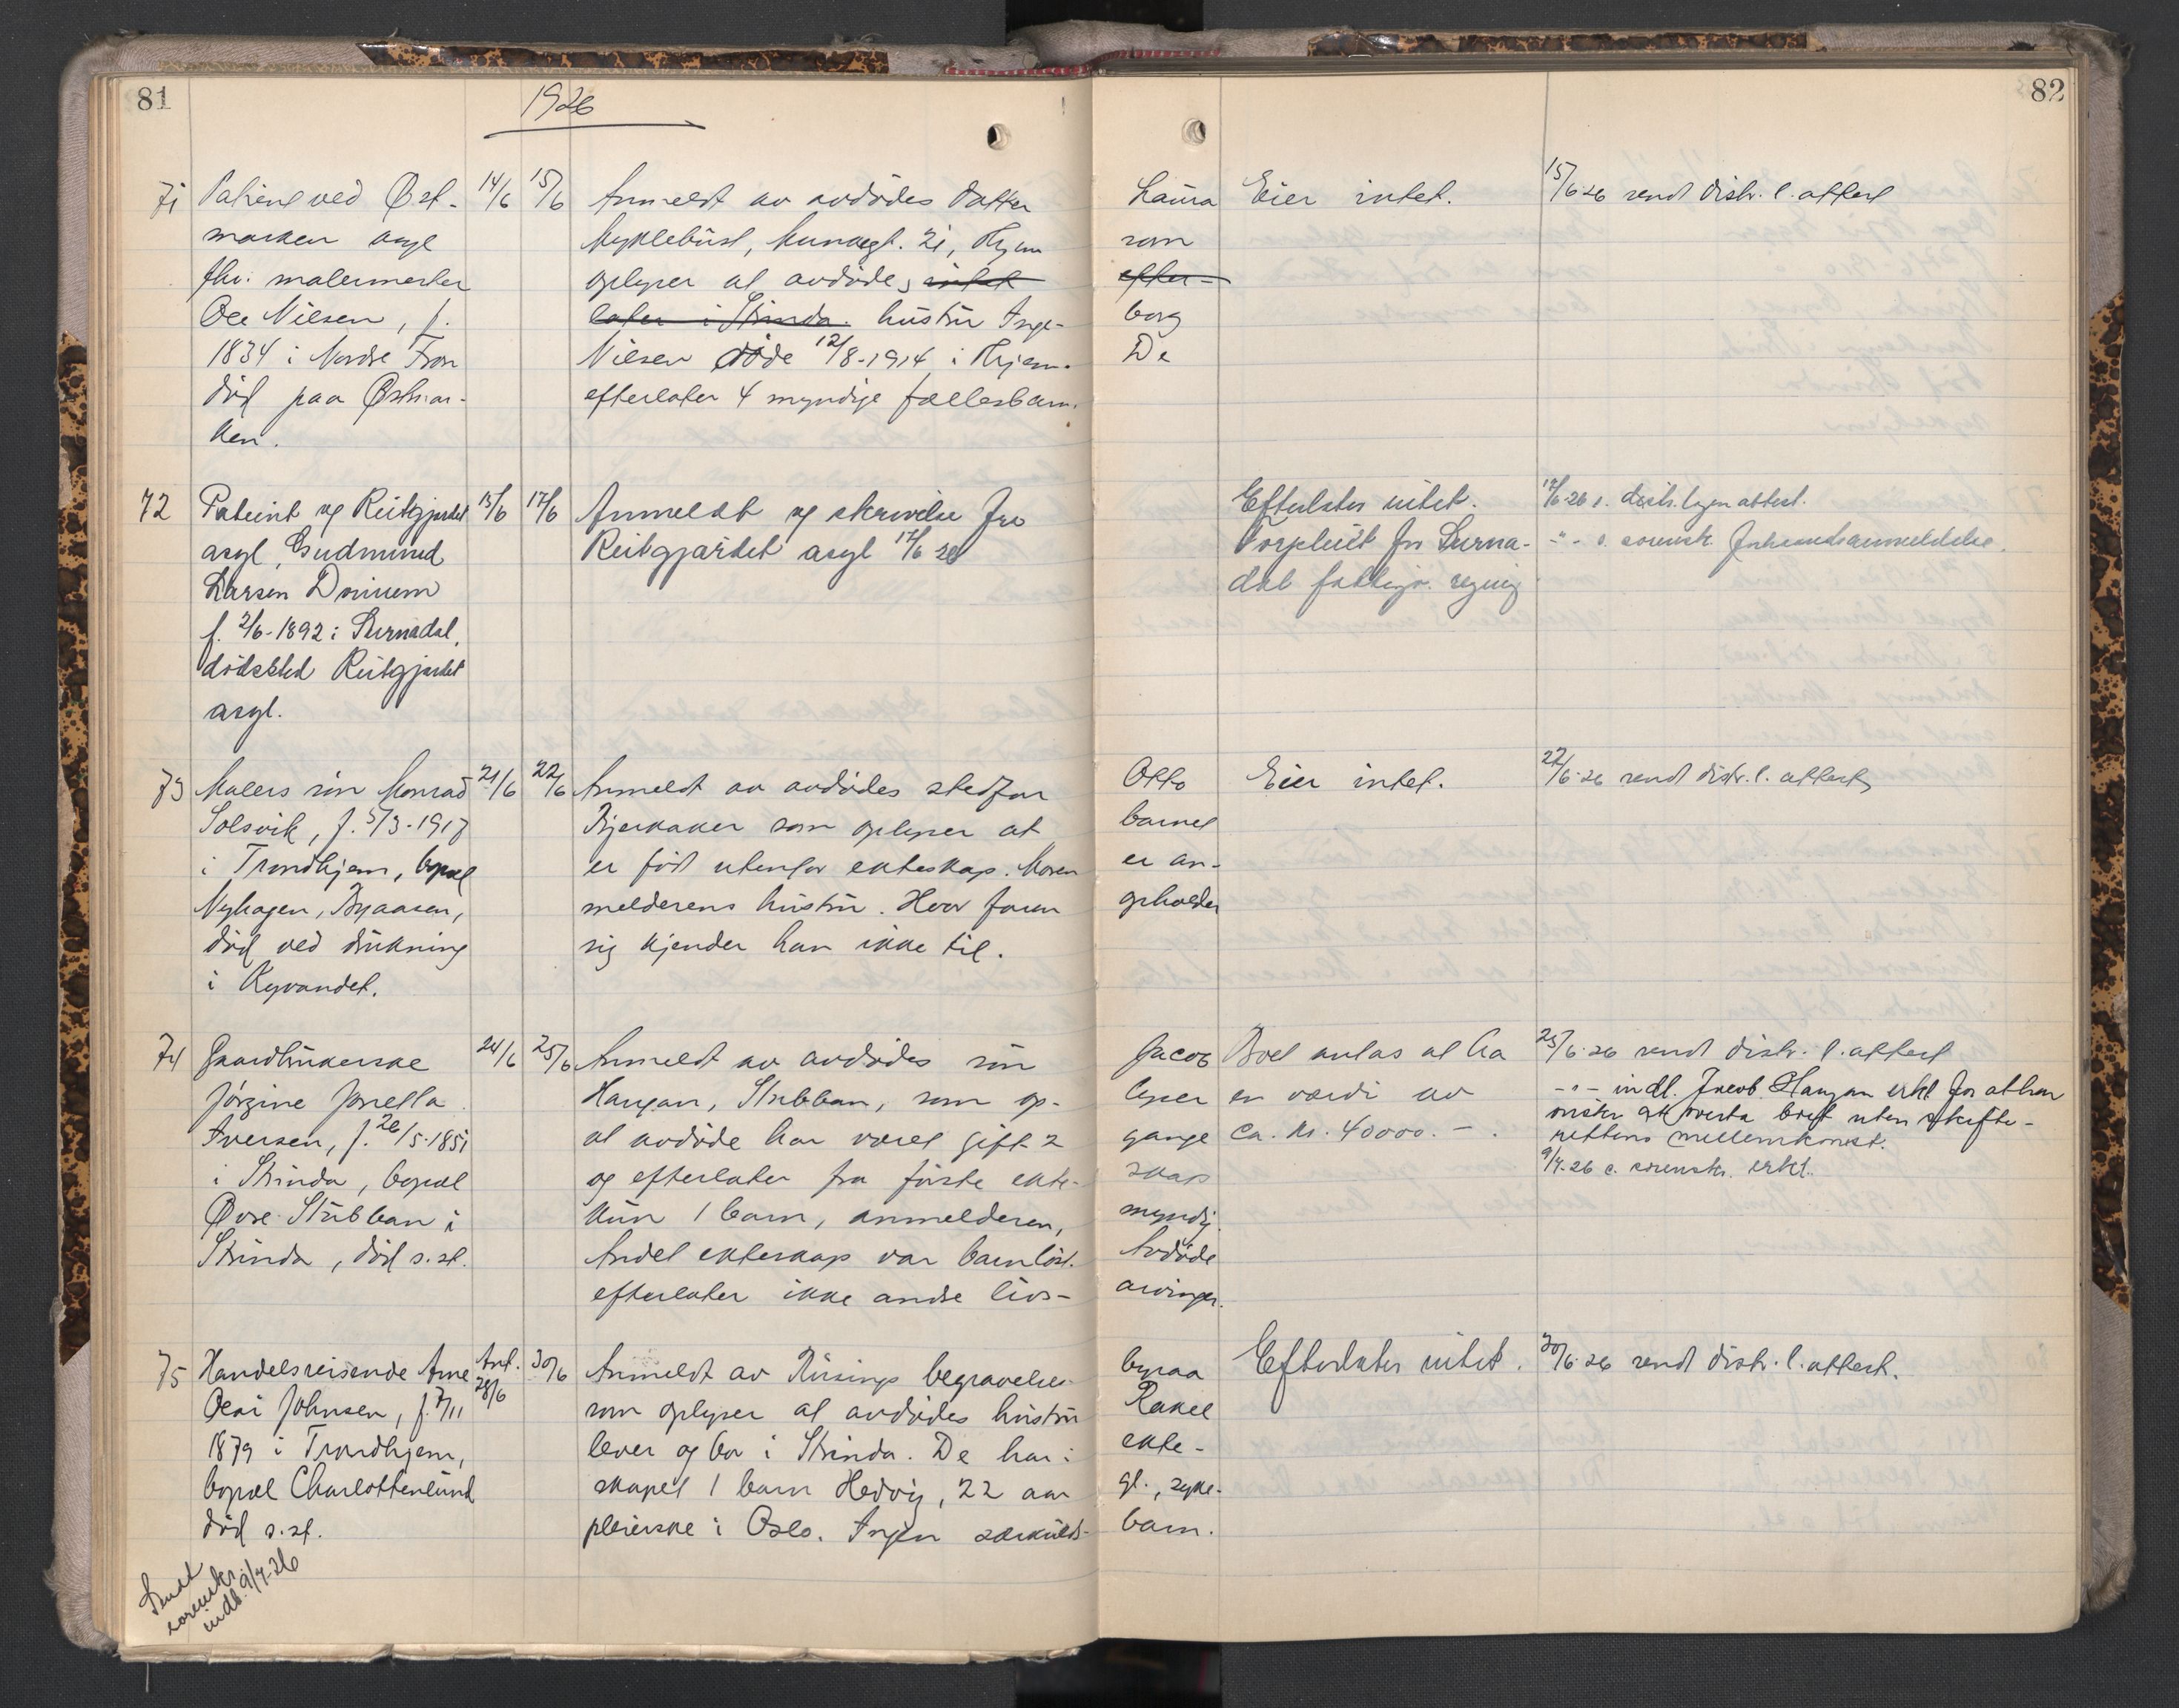 81
1926
71 Patient ved Øst-
marken asyl
fhv. malermester
Ole Nilsen, f.
1834 i Nordre Fron
död paa Østmar-
ken.
14/6 15/6
Anmeldt av avdödes datter Laura
Myklebust, Munkegt. 21, Thjem som
oplyser at avdödes intet efter-
later i Strinda. hustru Inge- borg
Nilsen döde 12/8-1914 i Thjem. De
efterlater 4 myndige fællesbarn.
Eier intet.
15/6-26 sendt distr. l. attest
72 Patient og Reitgjerdet
asyl, Gudmund
Larsen
f. 2/6-1892 i Surnadal,
dödssted Reitgjerdet
asyl.
15/6 17/6
Anmeldt og skrivelse fra
Reitgjærdet asyl 17/6 26
Efterlater intet.
Forpleiet for Surna-
dal fattigv. regning
17/6-26 s. distr. legen attest.
-"- s. sorenskr.
73 Malers sön Monrad
Solsvik, f. 5/3-1917
i Trondhjem, bopæl
Nyhagen, Byaasen,
död ved drukning
i Kyvandet.
21/6 22/6
Anmeldt av avdödes stedfar Otto
Bjerkaker som oplyser at barnet
er föd utenfor ekteskap. Moren er an-
melderens hustru. Hvor faren opholder
sig kjender han ikke til.
Eier intet.
22/6-26 sendt distr. l. attest
74 Gaardbrukerske
Jörgine Jonetta
Iversen, f. 26/5-1851
i Strinda, bopæl
Øvre Stubban i
Strinda, död s.st.
24/6 25/6
Anmeldt av avdödes sön Jacob
Haugan, Stubban, som op- lyser
at avdöde har været gift 2 gange
og efterlater fra förste ekte- skap
kun 1 barn, anmelderen, myndig.
Andet ekteskap var barnlöst. Avdöde
efterlater ikke andre livs- arvinger.
Boet antas at ha
en værdi av
ca. kr. 40000.-.
25/6-26 sendt distr. l. attest
-"- indl. Jacob Haugan erkl. for at han
önsker at overta boet uten skifte-
rettens mellemkomst.
9/7-26 s. sorenskr. erkl.
75 Handelsreisende Arne
Johnsen, f. 7/11
1879 i Trondhjem,
bopæl Charlottenlund
död s.st.
Ant. 28/6 30/6
Anmeldt av begravelses- byraa
som oplyser at avdödes hustru Rakel
lever og bor i Strinda. De har i ekte-
skapet 1 barn Hedvig, 22 aar gl., syke-
pleierske i Oslo. Ingen særkulds- barn.
Efterlater intet.
30/6-26 sendt distr. l. attest.
Sendt
sorenskr.
indb. 9/7-26
82